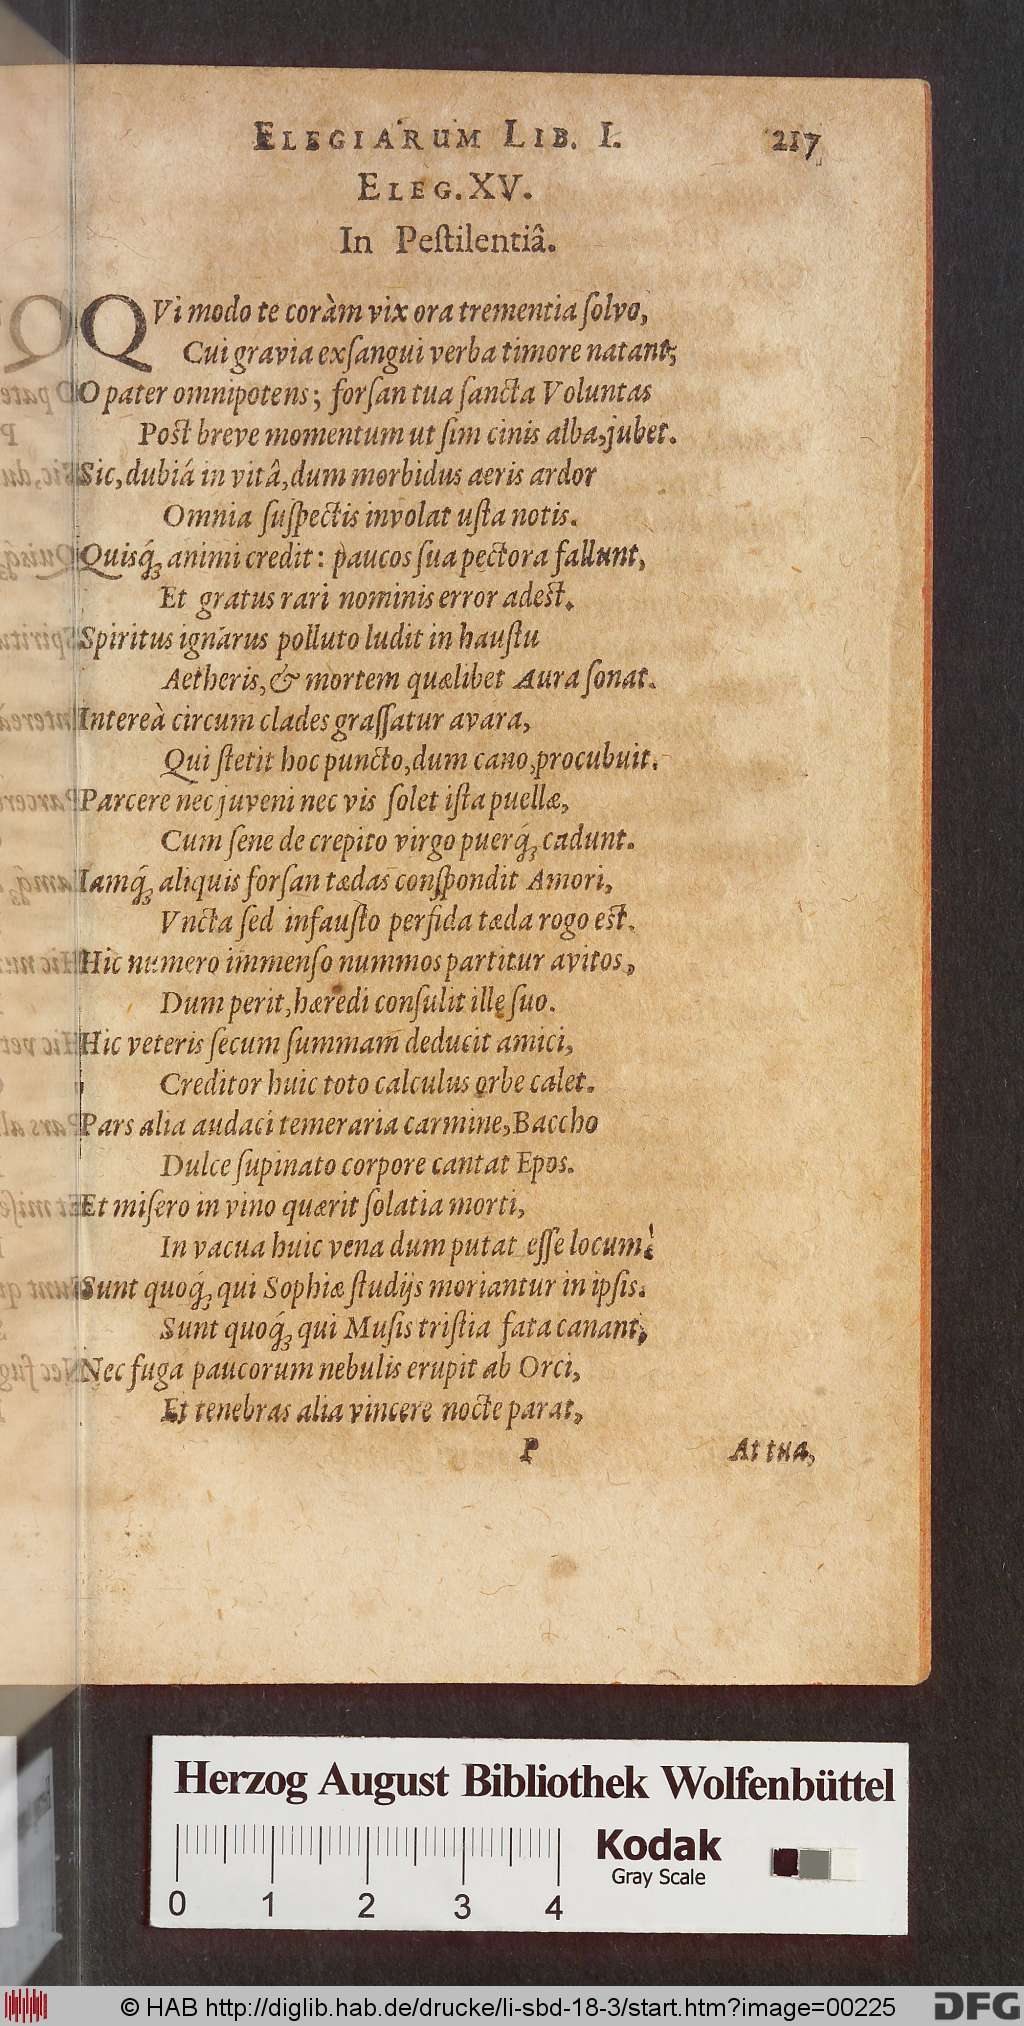 ELEGIARUM LIB. I. 217
ELEG. XV.
In Peſtilentiâ.
QVi modo te coràm vix ora trementia ſolvo,
Cui gravia exſangui verba timore natant;
O pater omnipotens; forſan tua ſancta Voluntas
Post breve momentum ut ſim cinis alba, jubet.
Sic, dubiâ in vitâ, dum morbidus aeris ardor
Omnia ſuſpectis involat uſta notis.
Quisq́; animi credit: paucos ſua pectora fallunt,
Et gratus rari nominis error adest.
Spiritus ignarus polluto ludit in hauſtu
Aetheris, & mortem quælibet Aura ſonat.
Intereà circum clades graſſatur avara,
Qui ſtetit hoc puncto, dum cano, procubuit.
Parcere nec juveni nec vis ſolet iſta puellæ,
Cum ſene de crepito virgo puerq́; cadunt.
Iamq́; aliquis forſan tædas conſpondit Amori,
Vncta ſed infauſto perfida tæda rogo est.
Hic numero immenſo nummos partitur avitos,
Dum perit, hæredi conſulit ille ſuo.
Hic veteris ſecum ſummam deducit amici,
Creditor huic toto calculus orbe calet.
Pars alia audaci temeraria carmine, Baccho
Dulce ſupinato corpore cantat Epos.
Et miſero in vino quærit ſolatia morti,
In vacua huic vena dum putat eſſe locum.
Sunt quoq́; qui Sophiæ ſtudijs moriantur in ipſis.
Sunt quoq́; qui Muſis triſtia fata canant;
Nec fuga paucorum nebulis erupit ab Orci,
Et tenebras alia vincere nocte parat,
P At tua,
Herzog August Bibliothek Wolfenbüttel
Kodak
Gray Scale
0 1 2 3 4
© HAB http://diglib.hab.de/drucke/li-sbd-18-3/start.htm?image=00225 DFG